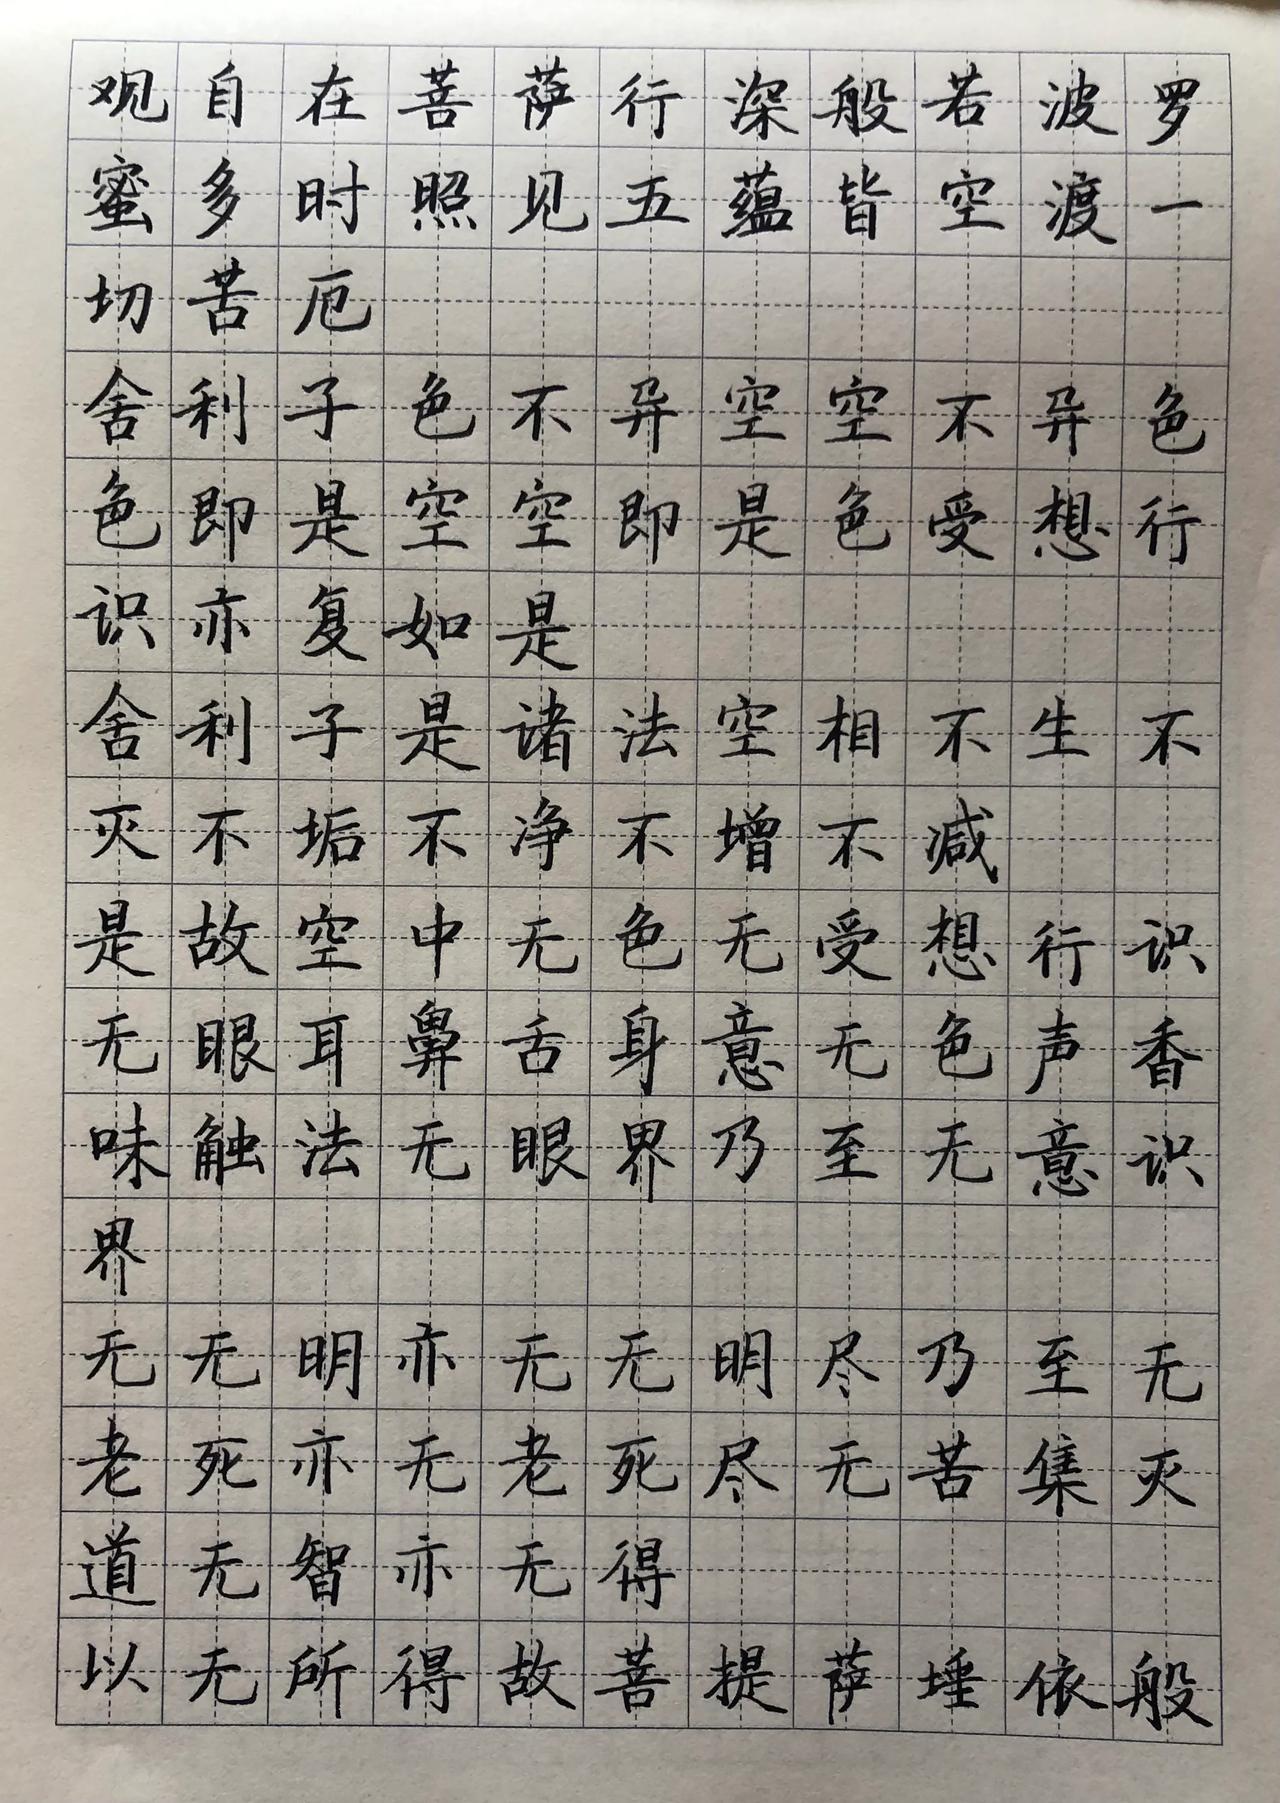 观自在菩萨行深般若波罗
蜜多时照见五蕴皆空渡一
切苦厄
舍利子色不异空空不异色
色即是空空即是色受想行
识亦复如是
舍利子是诸法空相不生不
灭不垢不净不增不减
是故空中无色无受想行识
无眼耳鼻舌身意无色声香
味触法无眼界乃至无意识
界
无无明亦无无明尽乃至无
老死亦无老死尽无苦集灭
道无智亦无得
以无所得故菩提萨埵依般